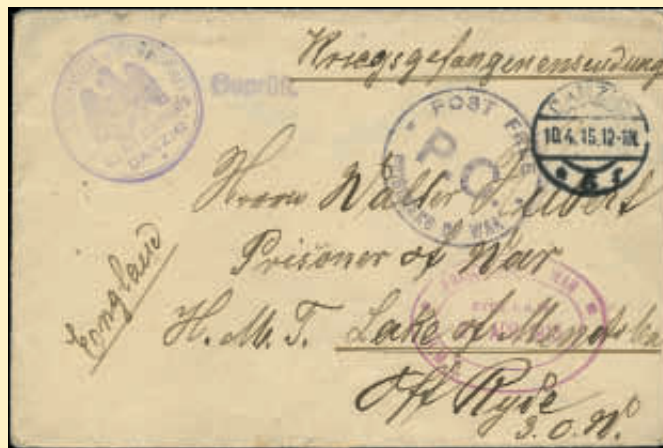 Kriegsgefangenensendung
Geprüft.
POST FREE
P.C.
PRISONERS OF WAR
DANZIG
10.4.15.12-1N.
* 5 f
DANZIG
Herrn Walter
Prisoner of War
England
H.M.T. Lake of Manitoba
Off Ryde
I.O.W.